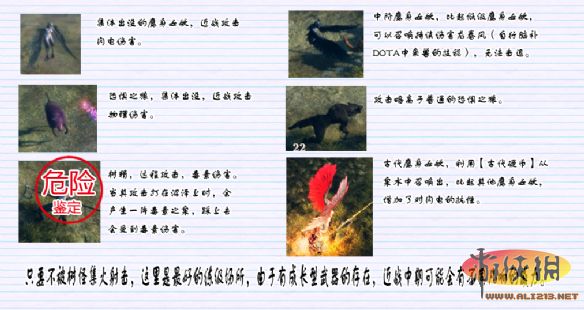 集体出没的鹰身女妖，近战攻击
闪电伤害。
中阶鹰身女妖，比起低级鹰身女妖，
可以召唤持续伤害龙卷风（自行脑补
DOTA中枭兽的技能），无法击退。
恐惧之猿，集体出没，近战攻击
物理伤害。
攻击略高于普通的恐惧之猿。
22
危险
鉴定
树精，远程攻击，毒素伤害。
当其攻击打在沼泽上时，会
产生一阵毒素之雾，踩上去
会受到毒素伤害。
古代鹰身女妖，利用【古代硬币】从
祭坛中召唤出，比起其他鹰身女妖，
增加了对闪电的抗性。
只要不被树怪集火射击，这里是最好的练级场所，由于有成长型武器的存在，近战中期可能会有
游侠網
WWW.ALI213.NET